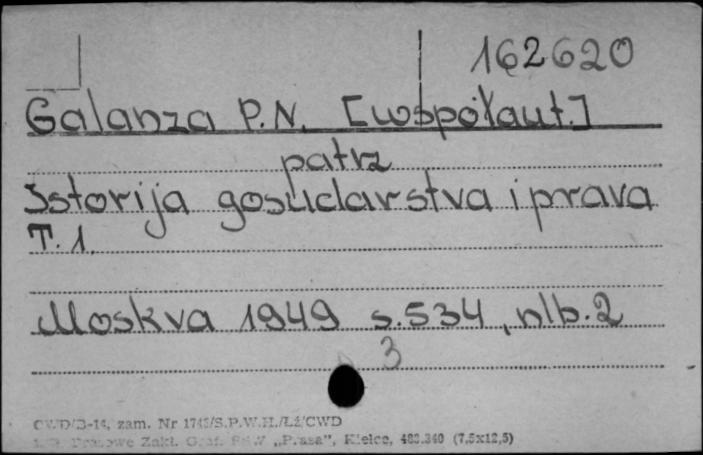 162620
Galanza P.N. [współaut.]
patrz
Istorija gosudarstva i prava
T. 1.
Moskva 1949 s. 534, nlb. 2
3
zam. Nr S.P.W.H./Lż/CWD
Zakł. Graf. „Prasa", Kielce, 483.340 (7,5x12,5)